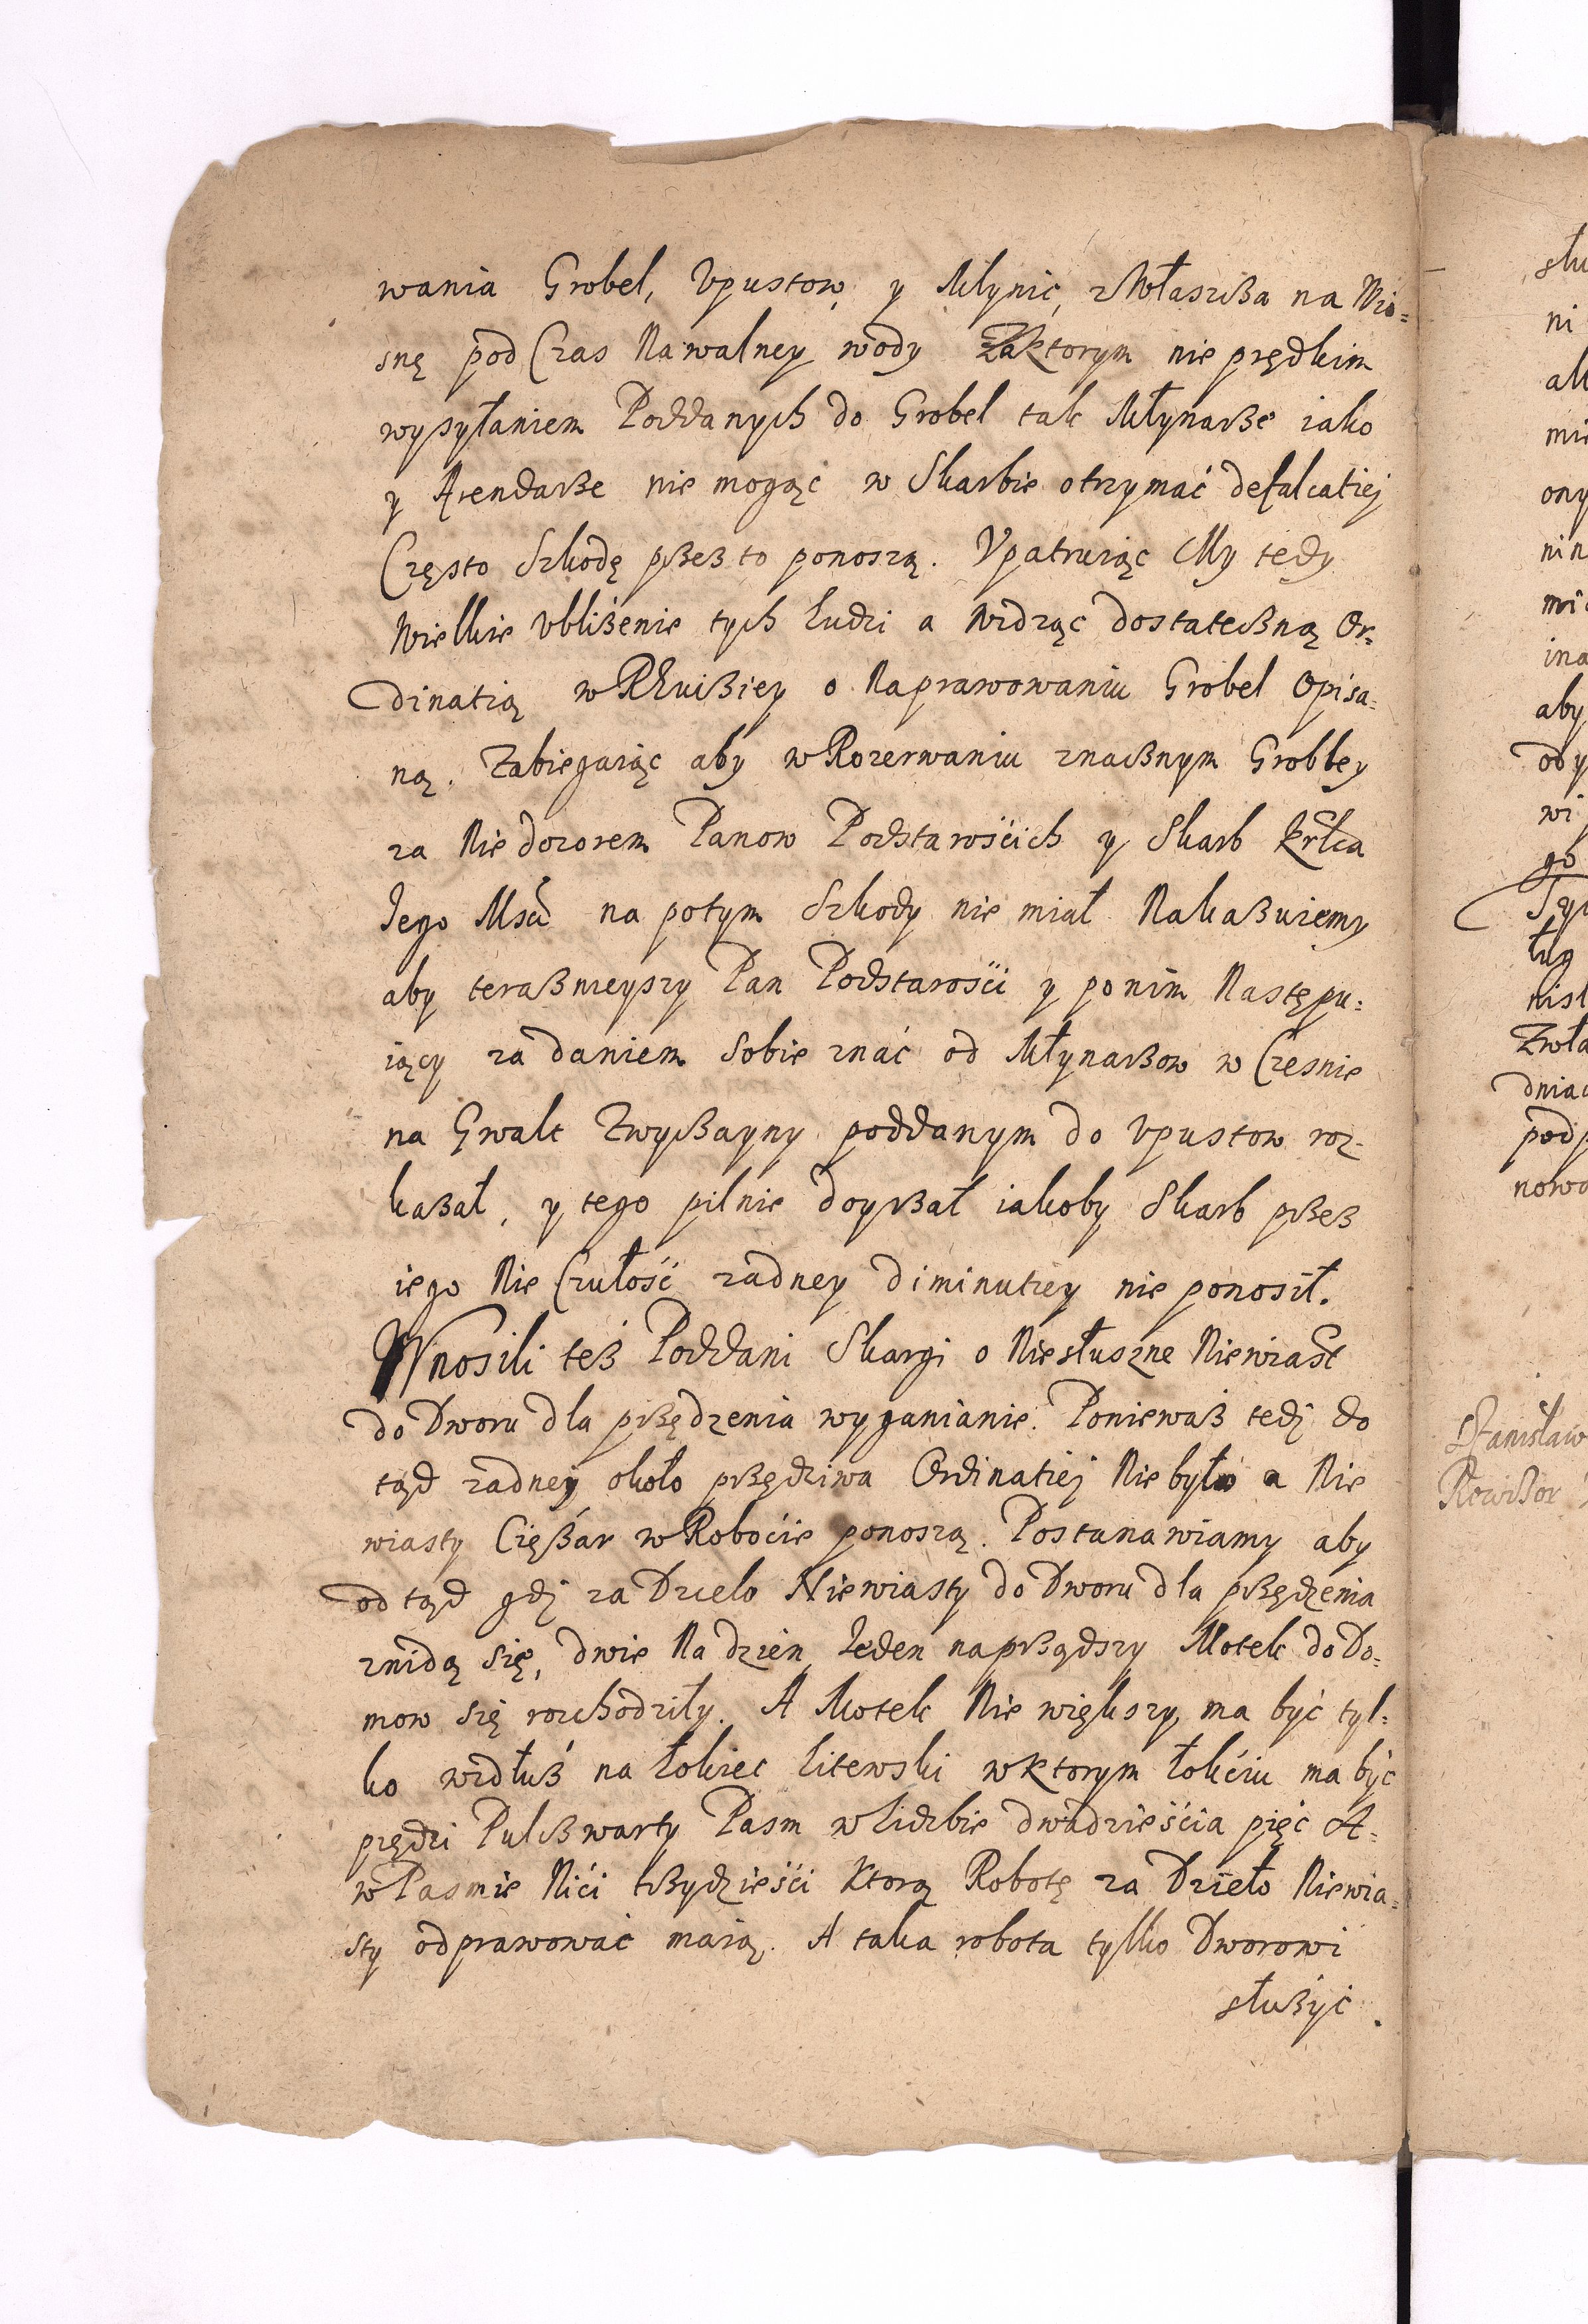 wania Grobel, Vpustow y Młynic, zwłaszcßa na Wio=
snę pod Czas Nawalney wody Zaktorym nieprędkim
wysyłaniem Poddanych do Grobel tak Młynarße iako
y Arendarße nie mogąc w Skarbie otrzymać defalcatiej
Często Szkodę przeß to ponoszą. Vpatruiąc My tedy
Wielkie vbliżenie tych ludzi a widząc dostatecßną Or=
dinatią w Rewißiey o Naprawowaniu Grobel Opisa=
ną. Zabiegaiąc aby w Rozerwaniu znacßnym Grobley
za Niedozorem Panow Podstarościch y Skarb Krlca
Jego Mści na potym Szkody nie miał Nakaßuiemy
aby teraßnieyszy Pan Podstarości y ponim Następu=
iący za daniem Sobie znać od Młynarßow w Czesnie
na Gwałt Zwycßayny poddanym do Vpustow roz=
kaßał, y tego pilnie doyrßał iakoby Skarb przeß
iego Nie Czułość zadney diminutiey nie ponosił.
Wnosili też Poddani Skargi o Niesłuszne Niewiast
do Dworu dla prßędzenia wyganianie. Ponieważ tedj do
tąd zadney około prßędziwa Ordinatiej Niebyło a Nie
wiasty Ciężar w Roboćie ponoszą. Postanawiamy aby
od tąd gdj za Dzieło Niewiasty do Dworu dla prßędzenia
znidą się, dwie Na dzien Jeden naprßądszy Motek do Do=
mow się rozchodziły. A Motek Nie większy ma być tyl=
ko wzdłuż na Łokiec Litewski w ktorym łokćiu ma być
prędzi Pulcßwarty Pasm w Liczbie dwadzieścia pięć A=
w Pasmie Nići trßydzieści Ktorą Robotę za Dzieło Niewia=
sty odprawować maią. A taka robota tylko Dworowi
służyć.
słu
ni
mie
ony
nin
ina
aby
ody
wi
go
Zwła
dniac
podp
nowo
Stanisław
Rewisor